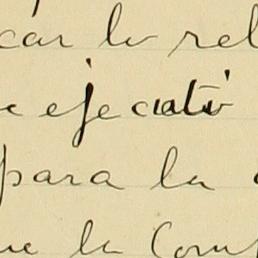 car lo rel
e ejecuti
para la
ue la Com